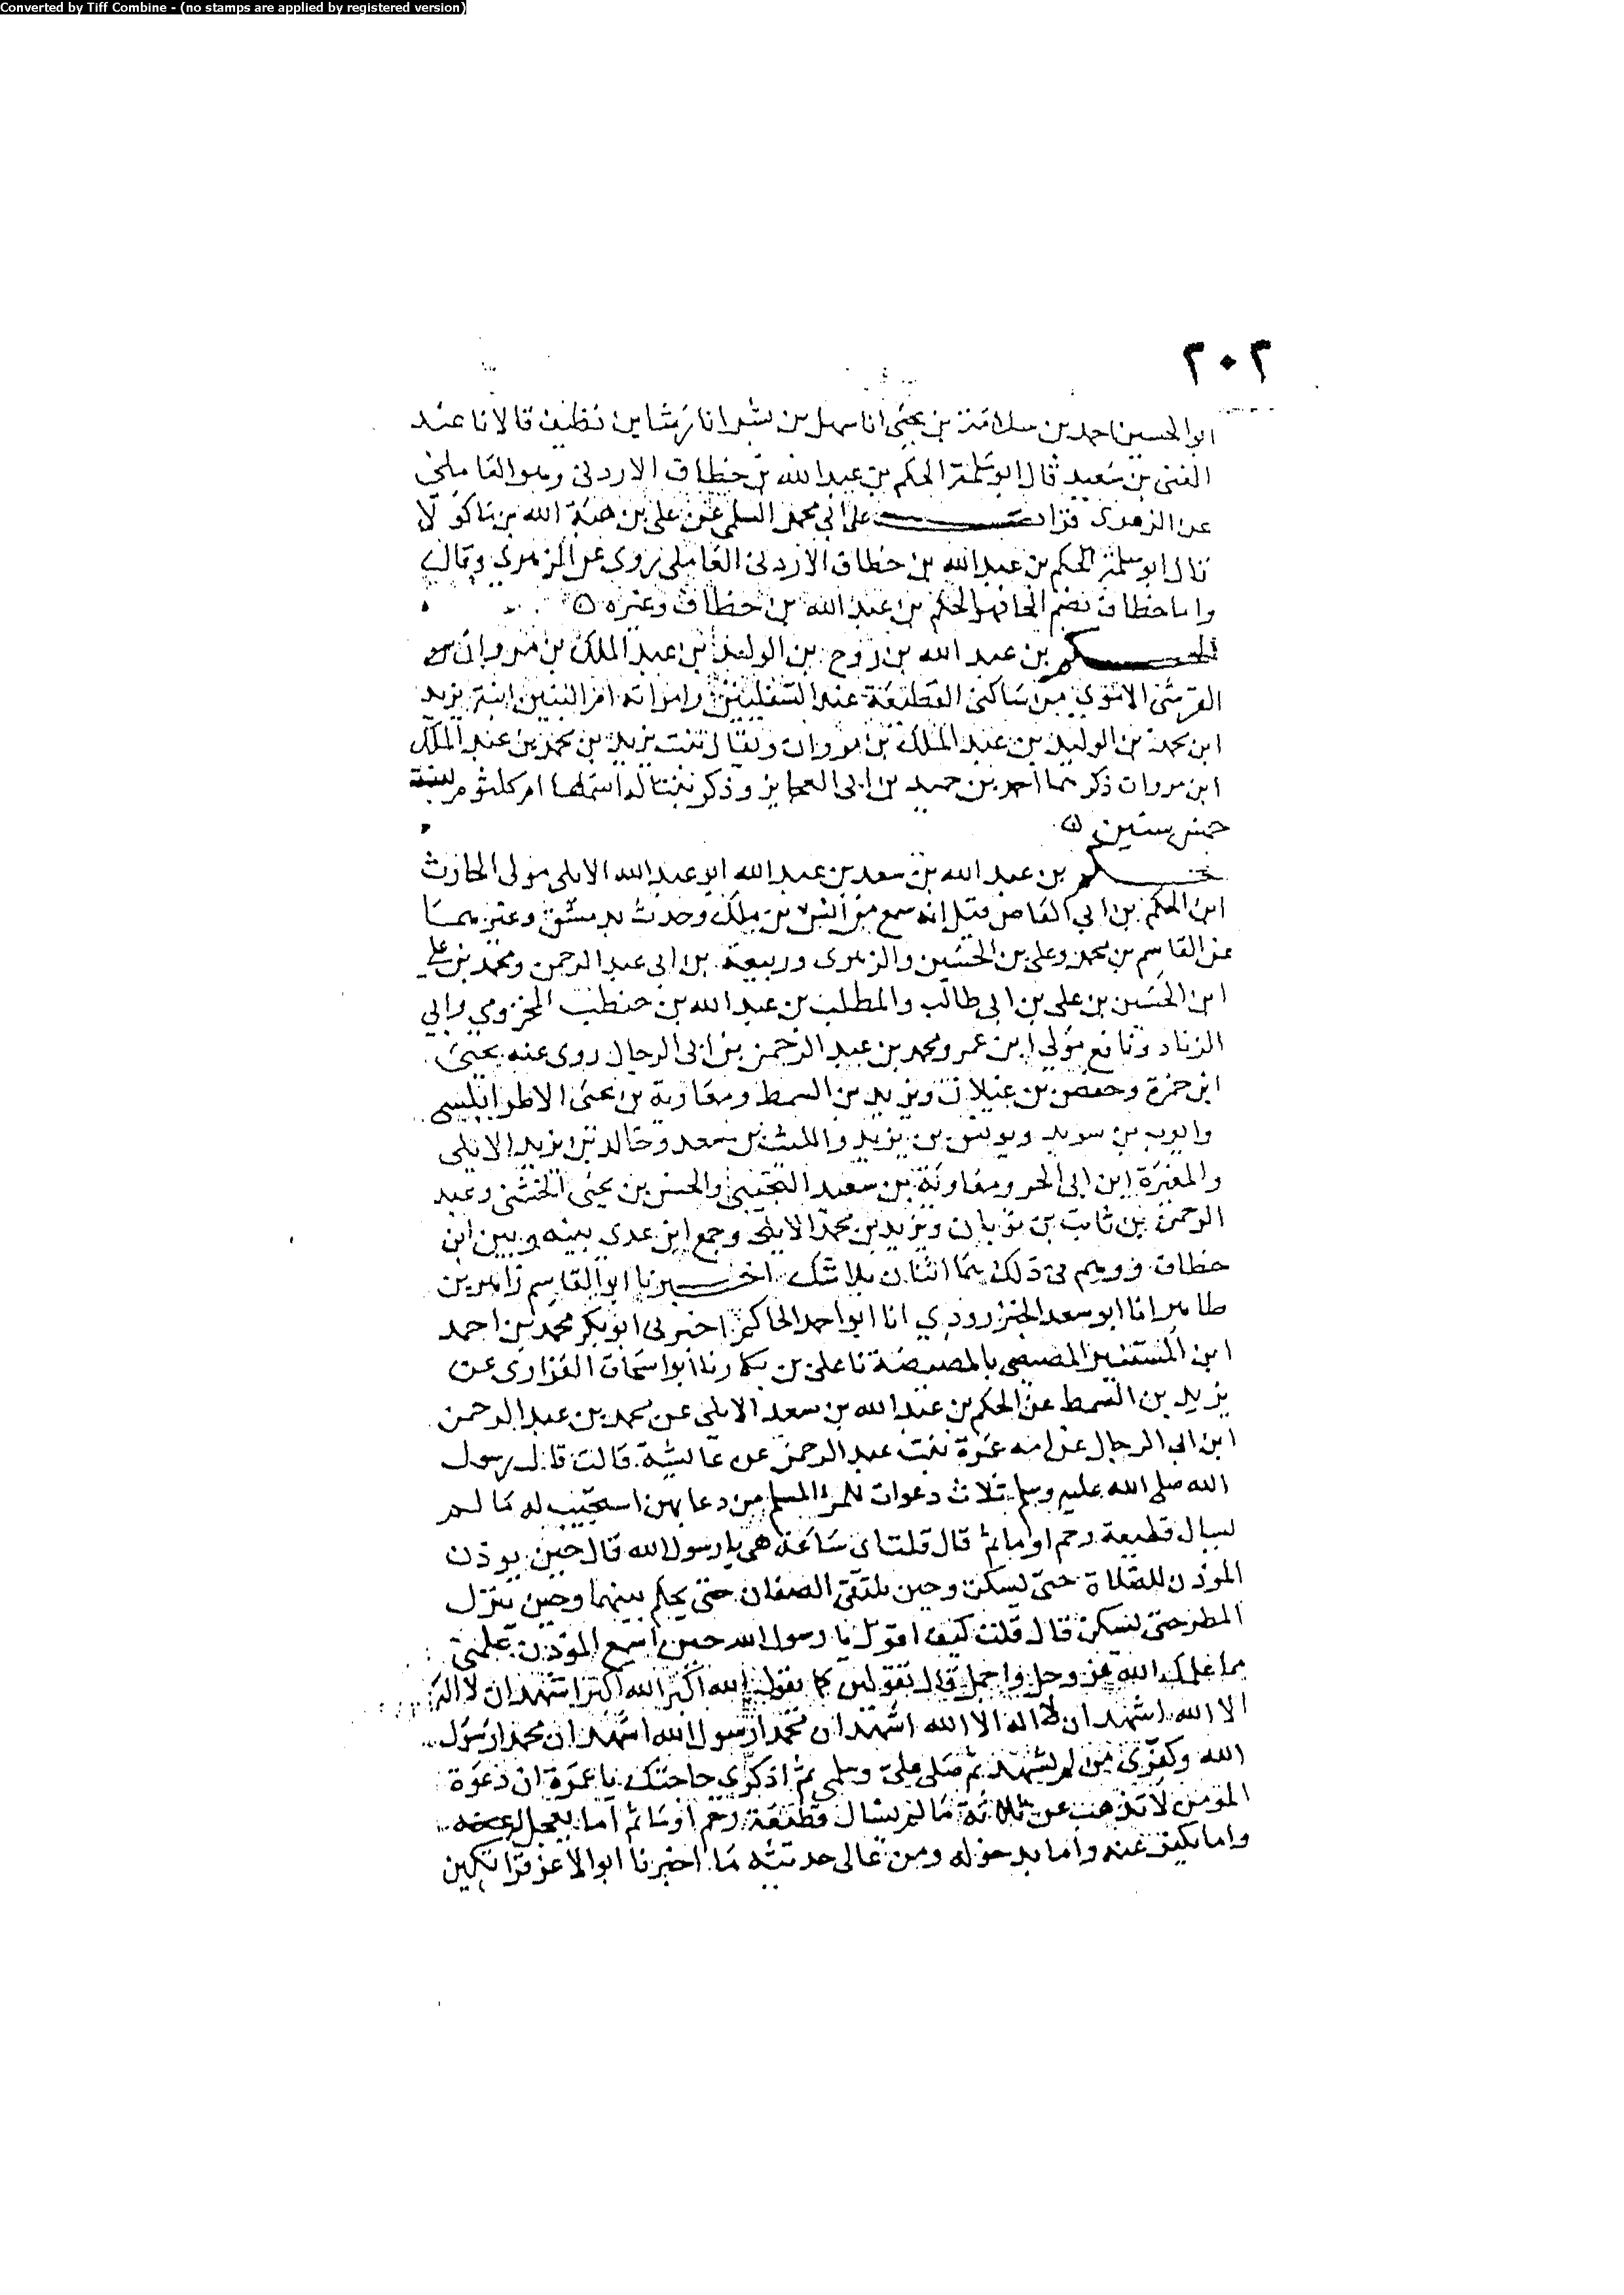 Converted by Tiff Combine - (no stamps are applied by registered version)
٢٠٢
ابو الحسين احمد بن سلامة بن يحيى انا سهل بن بشر انا رشا بن نظيف قالا نا عبد
الغنى بن سعيد قال ابو سلمة الحكم بن عبد الله بن خطاف الاردنى وهو العاملى
عن الزهرى قرات على ابى محمد السلمى عن على بن هبة الله بن ماكولا
قال ابو سلمة الحكم بن عبد الله بن خطاف الاردنى العاملى روى عن الزهرى وقال
واما خطاف بضم الخا فهو الحكم بن عبد الله بن خطاف وغيره ٥
الحكم بن عبد الله بن روح بن الوليد بن عبد الملك بن مروان
القرشى الاموى من ساكنى القطيعة عند السفليين وامراته ام البنين ابنة يزيد
ابن محمد بن الوليد بن عبد الملك بن مروان ويقال بنت يزيد بن محمد بن عبد الملك
ابن مروان ذكرهما احمد بن حميد بن ابى العجايز وذكر بنتا له اسمها ام كلثوم بنت
خمس سنين ٥
حكم بن عبد الله بن سعد بن عبد الله ابو عبد الله الايلى مولى الحارث
ابن الحكم بن ابى العاص قيل انه سمع من انس بن ملك وحدث بدمشق وغيرها
عن القاسم بن محمد وعلى بن الحسين والزهرى وربيعة بن ابى عبد الرحمن ومحمد بن على
ابن الحسين بن على بن ابى طالب والمطلب بن عبد الله بن حنطب المخزومي وابي
الزناد ونافع مولى ابن عمر ومحمد بن عبد الرحمن بن ابى الرجال روى عنه يحيى
ابن حمزة وحفص بن غيلان ويزيد بن السمط ومعاوية بن يحيى الاطرابلسى
وايوب بن سويد ويونس بن يزيد والليث بن سعد وخالد بن يزيد الايلى
والمغيرة ابن ابى الحر ومعاوية بن سعيد التجيبى والحسن بن يحيى الخشنى وعبد
الرحمن بن ثابت بن ثوبان ويزيد بن محمد الايلى وجمع ابن عدى بينه وبين ابن
خطاف ووهم فى ذلك هما اثنان بلا شك اخبرنا ابو القاسم زاهر بن
طاهر انا ابو سعد الجنزرودي انا ابو احمد الحاكم اخبرنى ابو بكر محمد بن احمد
ابن المستنير المصيصى بالمصيصة نا على بن بكار نا ابو اسحاق الفزارى عن
يزيد بن السمط عن الحكم بن عبد الله بن سعد الايلى عن محمد بن عبد الرحمن
ابن ابى الرجال عن امه عمرة بنت عبد الرحمن عن عائشة قالت قال رسول
الله صلى الله عليه وسلم ثلاث دعوات للمرء المسلم من دعا بهن استجيب له ما لم
يسال قطيعة رحم او ماثم قال قلت اى ساعة هى يا رسول الله قال حين يوذن
الموذن للصلاة حتى يسكت وحين يلتقى الصفان حتى يحكم بينهما وحين ينزل
المطر حتى يسكن قال قلت كيف اقول يا رسول الله حين اسمع الموذن علمنى
مما علمك الله عز وجل واجمل قال تقولين كما يقول الله اكبر الله اكبر اشهد ان لا اله
الا الله اشهد ان لا اله الا الله اشهد ان محمدا رسول الله اشهد ان محمدا رسول
الله وكفرى من لم يشهد ثم صلى على وسلمى ثم اذكرى حاجتك يا عمرة ان دعوة
المومن لا تذهب عن ثلاثة ما لم يسال قطيعة رحم او ماثم اما يعجل له
واما يكفر عنه واما يدخر له ومن عالى حديثه ما اخبرنا ابو الاعز قراتكين